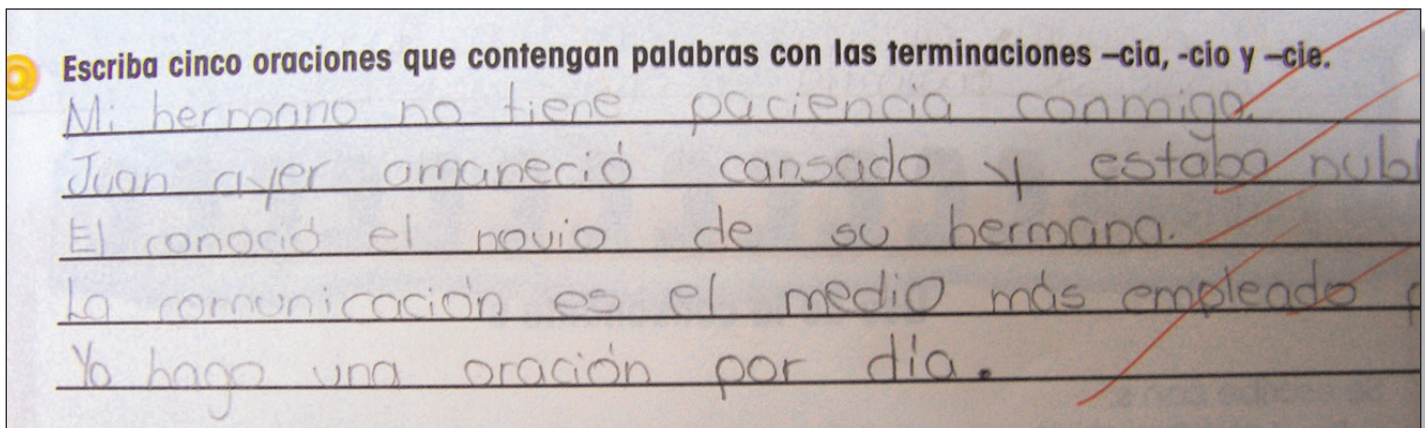 Escriba cinco oraciones que contengan palabras con las terminaciones –cia, -cio y –cie.
Mi hermano no tiene paciencia conmigo.
Juan ayer amaneció cansado y estaba nubl
El conoció el novio de su hermana.
La comunicación es el medio más empleado
Yo hago una oración por día.